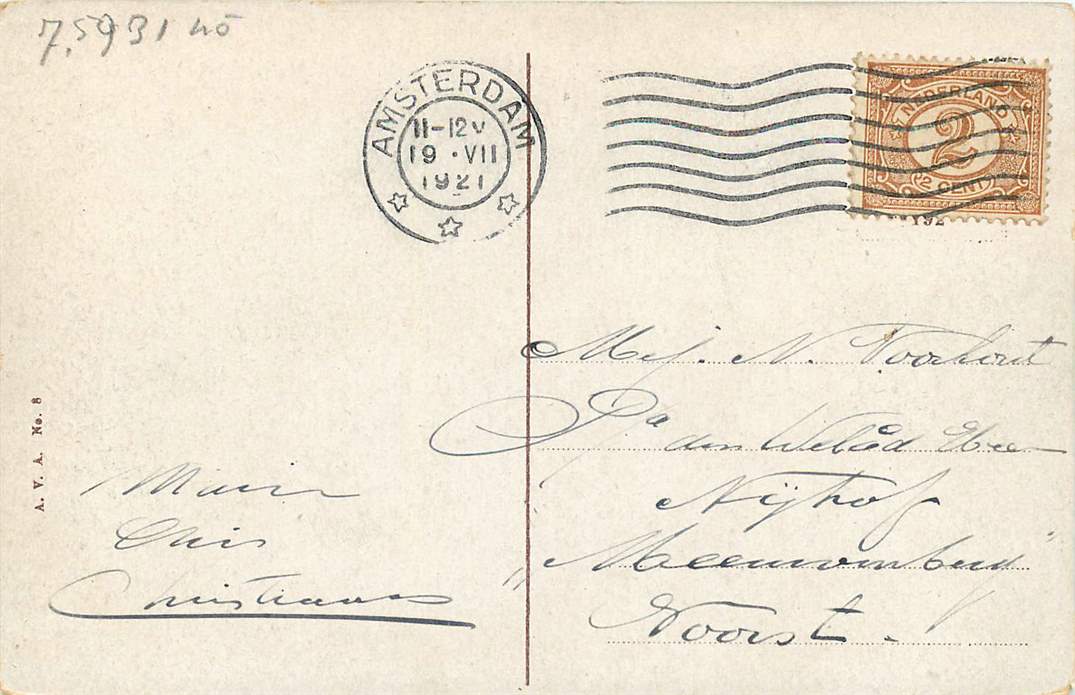 7,5931 nō
AMSTERDAM
11-12 V
19 · VII
1921
NEDERLAND
2
2 CENT
192
Mej. N. Voorhout
P/a den WelEd Heer
Nijhof
„Meeuwenberg"
Voorst.
A. V. A. No. 8
Chris
Christiaans